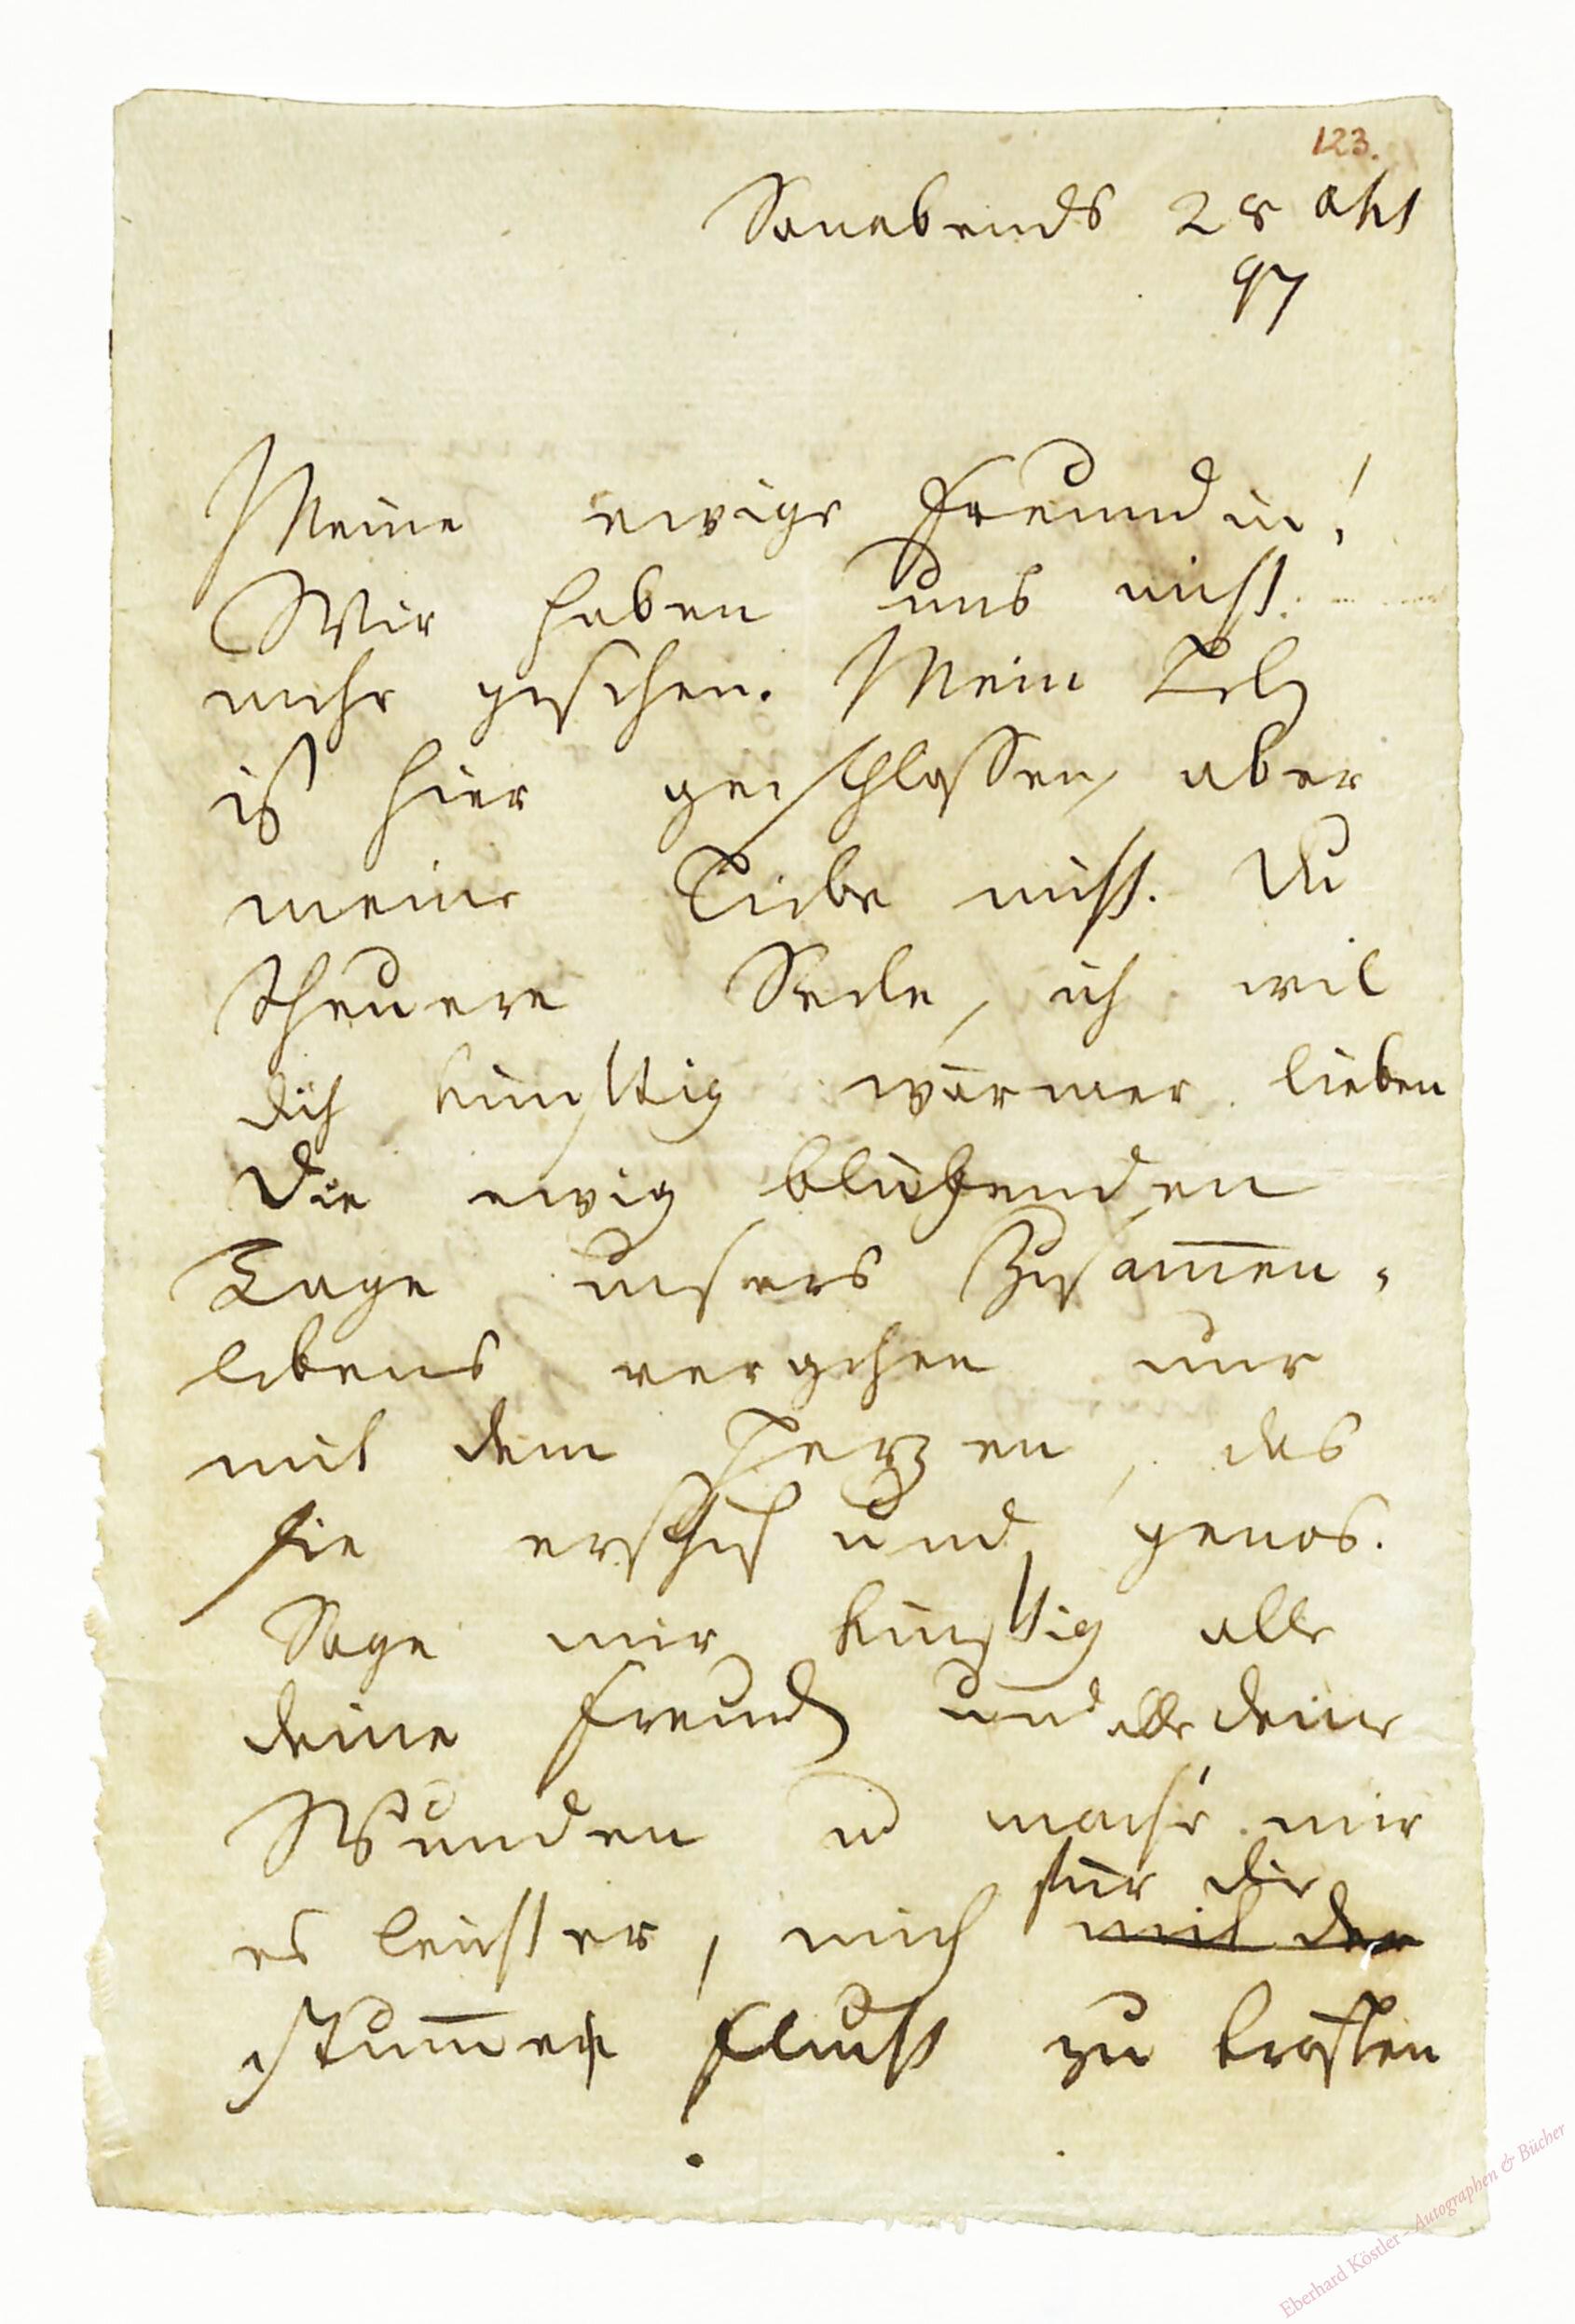 123.
Sonabends 28 Okt
97
Meine ewige Freundin!
Wir haben uns nicht
mehr gesehen. Mein
ist hier geschlossen, aber
meine Liebe nicht. Du
theuere Seele, ich wil
dich künftig wärmer lieben
Die ewig blühenden
Tage unsers Zusam̅en-
lebens vergehen nur
mit dem Herzen, das
sie erschuf und genos.
Sage mir künftig alle
deine Freuden und alle deine
Wunden u mache mir
für die
es leichter, mich mit der
stum̅e Flucht zu trösten
Eberhard Köstler – Autographen & Bücher